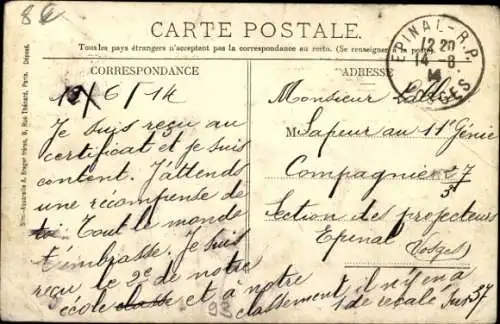 86
CARTE POSTALE.
Tous les pays étrangers n'acceptent pas la correspondance au recto. (Se renseigner à la poste)
EPINAL - R.P.
12 20
14 - 6
14
VOSGES
CORRESPONDANCE
ADRESSE
12/6/14
Je suis reçu au
certificat et je suis
content. J'attends
une récompense de
toi Tout le monde
t'embrasse. Je suis
reçu le 2e de notre
école classe et à notre
classement il n'y en a
1 de recalé sur 37
93
Monsieur
M Sapeur au 11e Génie
Compagnie 27/3
Section des projecteurs
Epinal
(Vosges)
A. Breger frères, 9, Rue Thénard, Paris. Déposé.